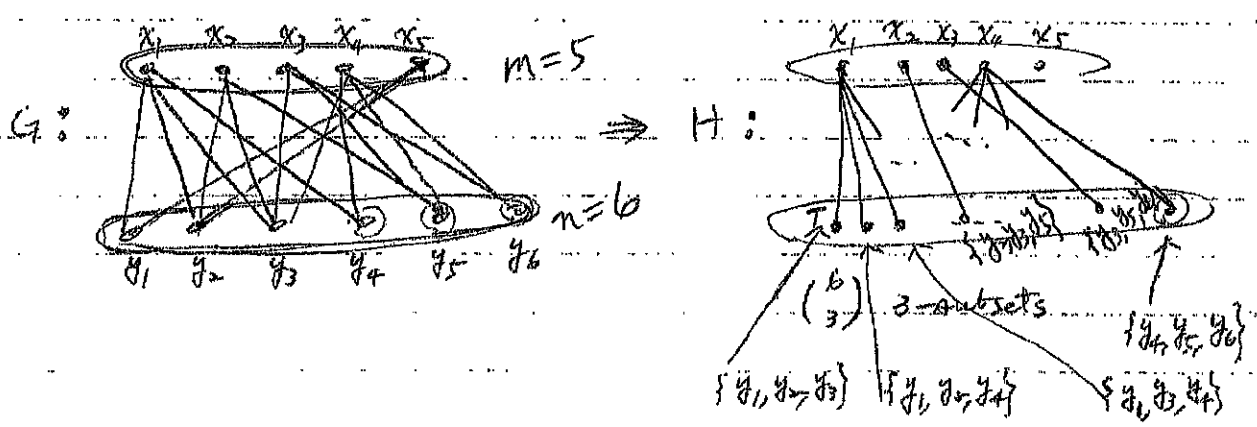 x₁ x₂ x₃ x₄ x₅ m=5
G:
n=6
y₁ y₂ y₃ y₄ y₅ y₆
⇒ H:
x₁ x₂ x₃ x₄ x₅
I {y₂,y₃,y₅} {y₃,y₅,y₆}
(6 3) 3-subsets
{y₄,y₅,y₆}
{y₁,y₂,y₃} {y₁,y₂,y₄} {y₁,y₃,y₄}